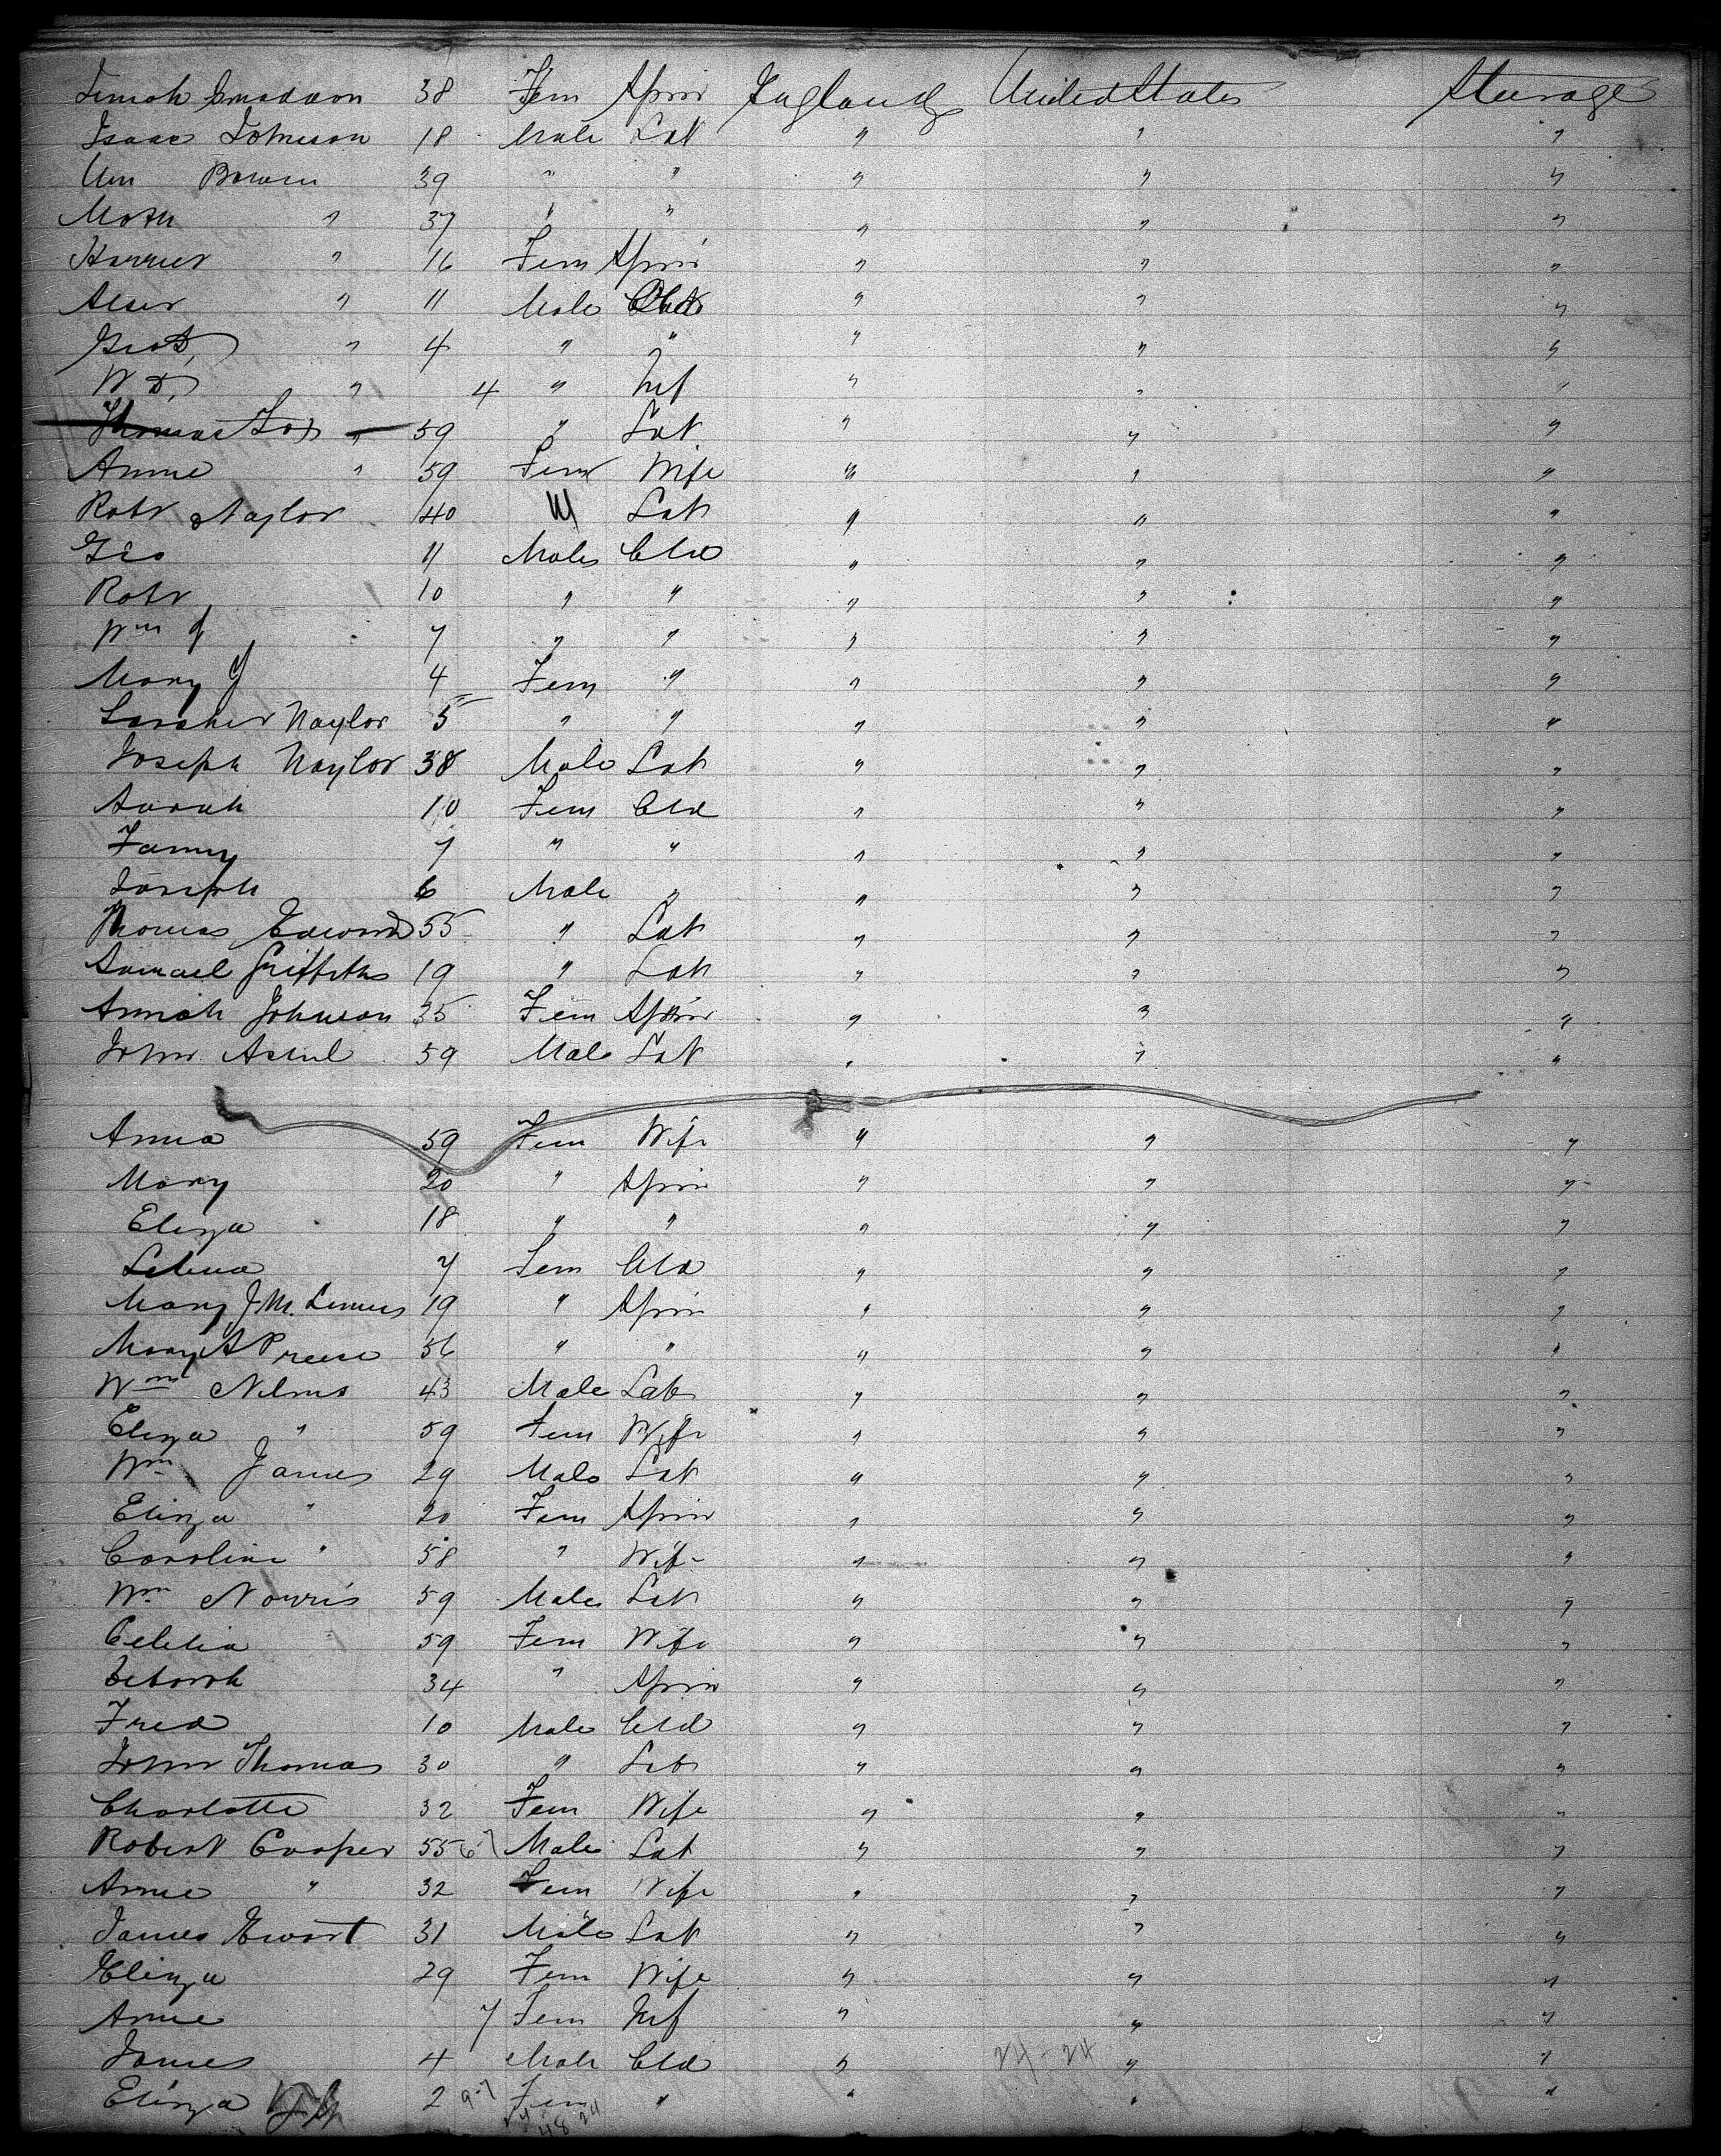 38 Fem Spin England United States Steerage
Isaac Johnson 18 Male Lab " " "
39 " " " " "
" 37 " " " " "
Harriet " 16 Fem Spin " " "
" 11 Male " " "
" 4 " " " " "
W D, " 4 " Inf " " "
Thomas Fox " 59 " Lab " " "
Annie " 59 Fem Wife " " "
Robt Naylor 40 M Lab " " "
Geo 11 Male Cld " " "
Robt 10 " " " " "
Wm J 7 " " " " "
Mary J 4 Fem " " " "
Naylor 5 " " " " "
Joseph Naylor 38 Male Lab " " "
Sarah 10 Fem Cld " " "
Fanny 7 " " " " "
Joseph 6 Male " " " "
Thomas Edwards 55 " Lab " " "
Samuel Griffiths 19 " Lab " " "
Annah Johnson 35 Fem Spin " " "
John 59 Male Lab " " "
Anna 59 Fem Wife " " "
Mary 20 " Spin " " "
Eliza 18 " " " " "
7 Fem Cld " " "
Mary J M. 19 " Spin " " "
Mary A Preece 56 " " " " "
Wm 43 Male Lab " " "
Eliza " 59 Fem Wife " " "
Wm James 29 Male Lab " " "
Eliza " 20 Fem Spin " " "
Caroline " 58 " Wife " " "
Wm Norris 59 Male Lab " " "
59 Fem Wife " " "
Deborah 34 " Spin " " "
Fred 10 Male Cld " " "
John Thomas 30 " Lab " " "
Charlotte 32 Fem Wife " " "
Robert Cooper 55 67 Male Lab " " "
Annie " 32 Fem Wife " " "
James Ewart 31 Male Lab " " "
Eliza 29 Fem Wife " " "
Annie 7 Fem Inf " " "
James 4 Male Cld " 24-24 " "
Eliza 2 9-7 Fem " " " "
24 48 24